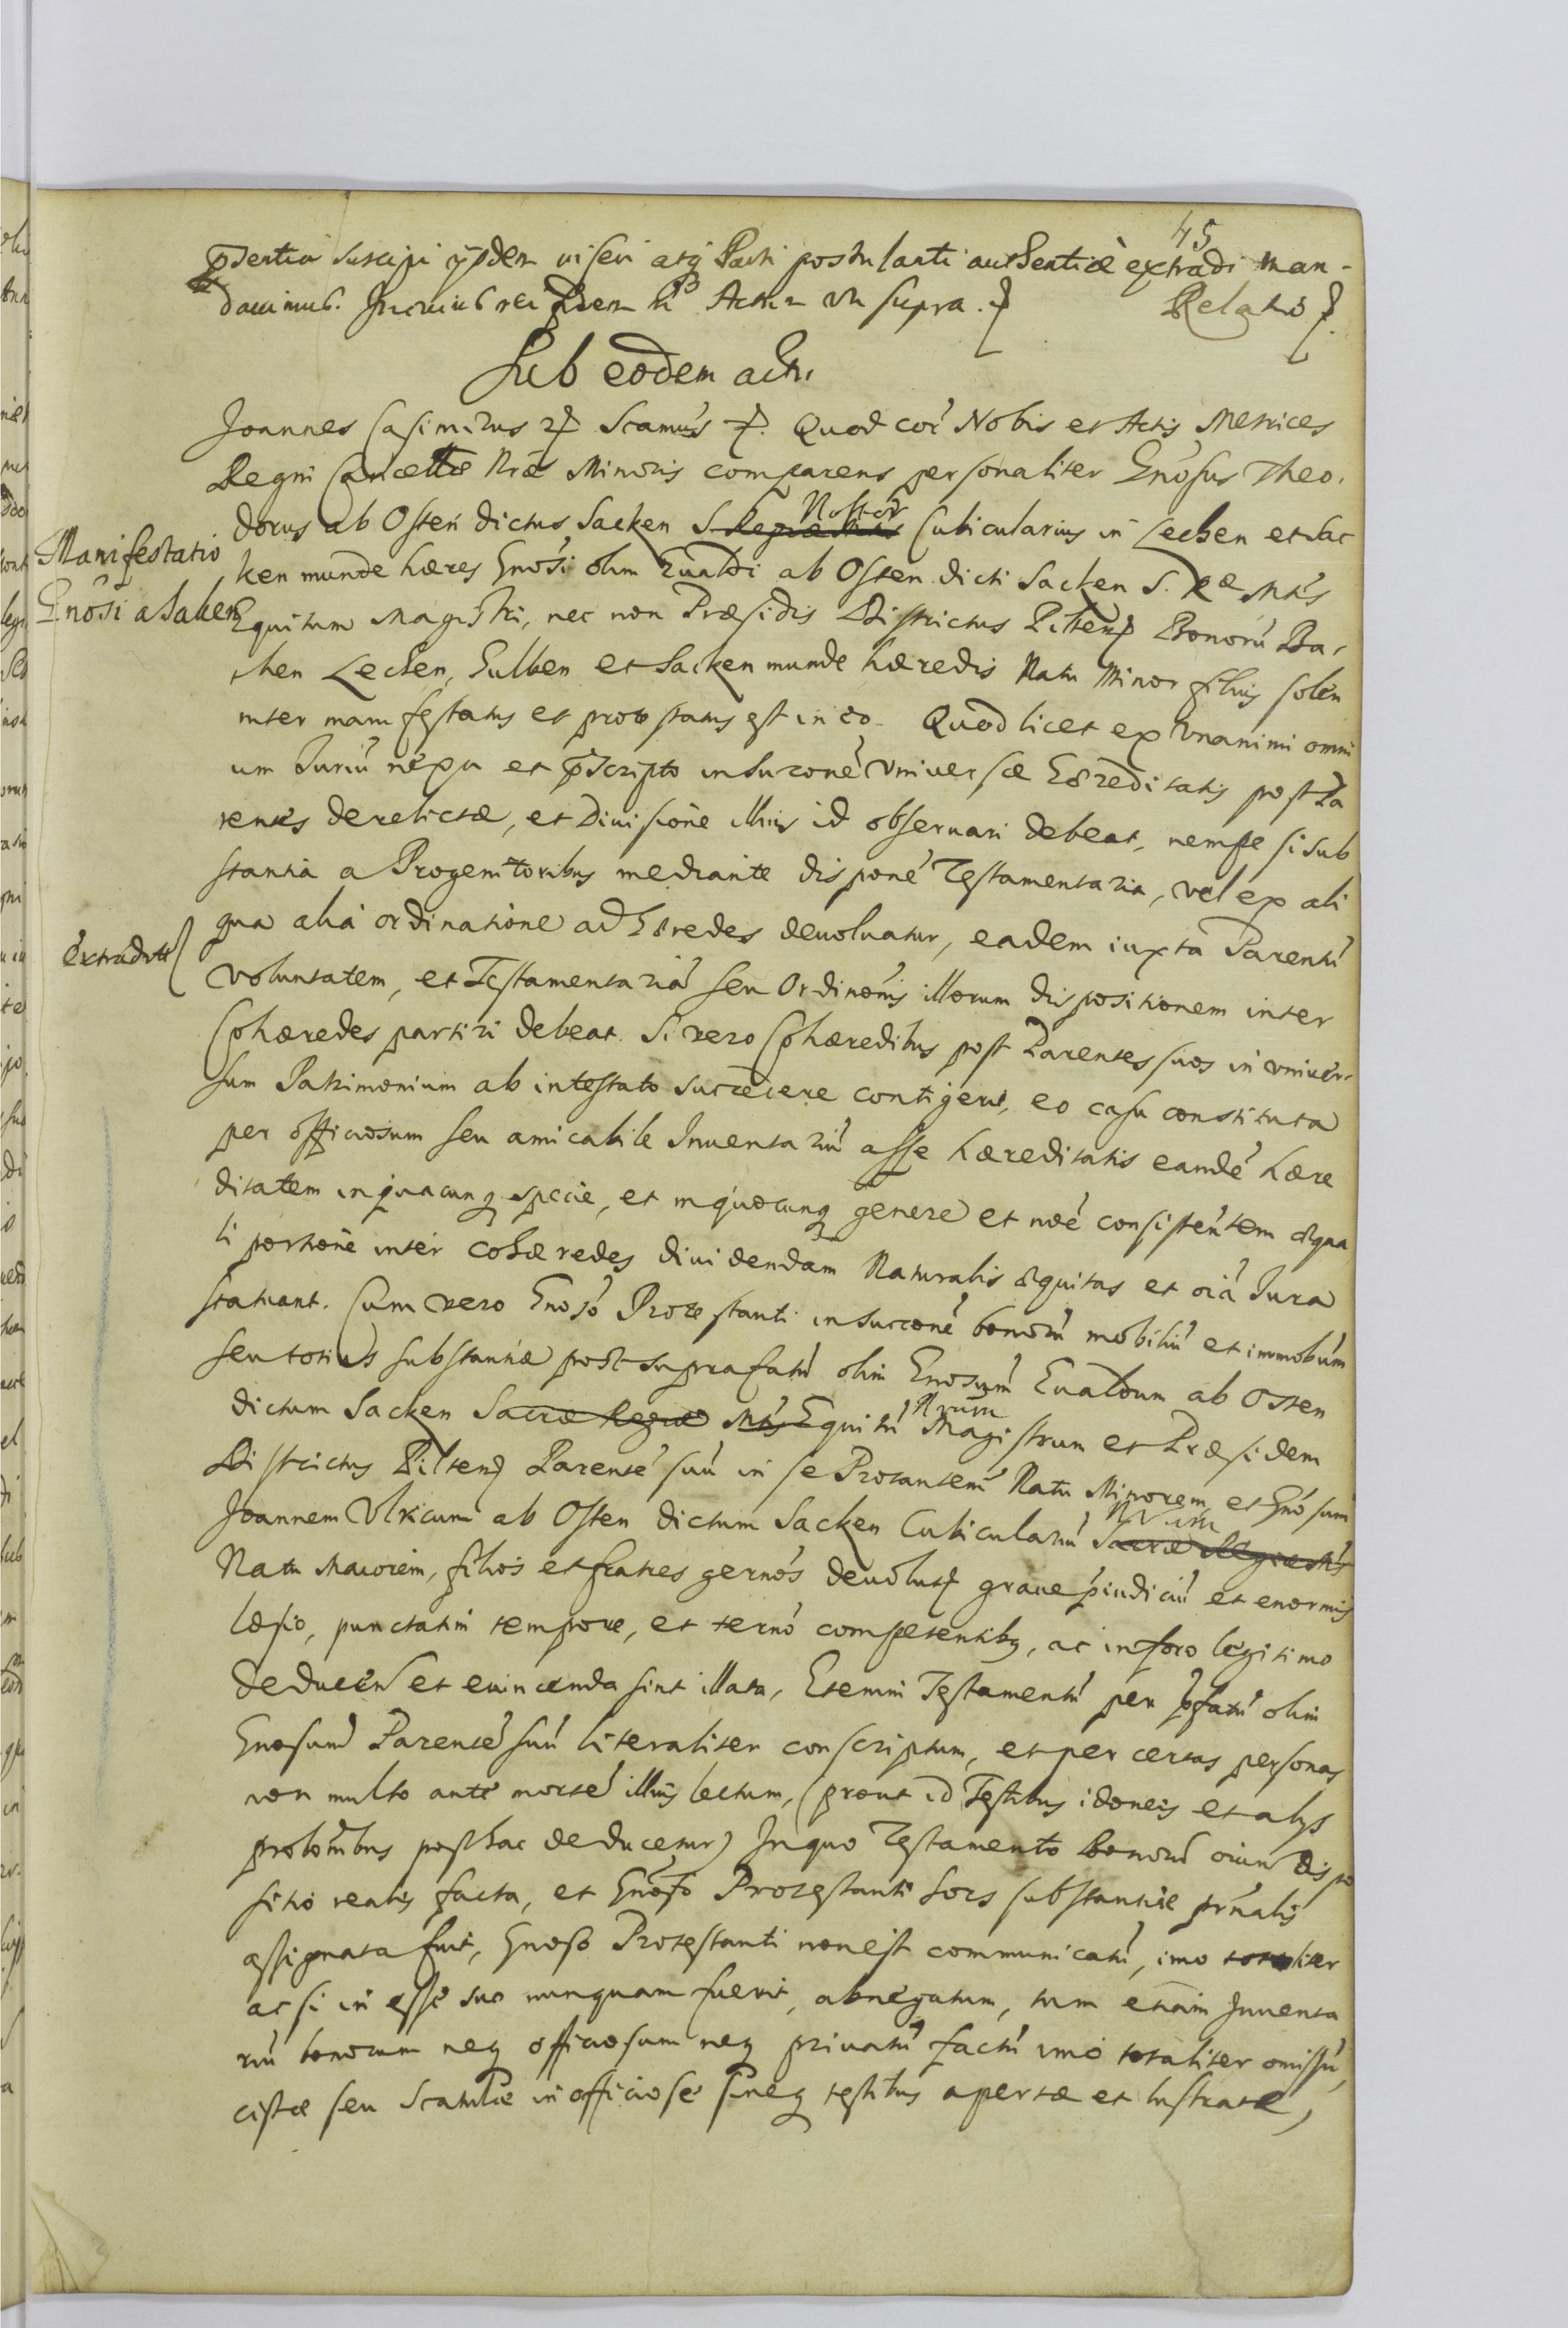 45
pñtia suscipi ijsdem inseri atq Parti postulanti authenticè extradi man-
dauimus. In cuius rei fidem p Actum ut supra.
Relatio
Sub eodem actu
Joannes Casimirus Significamus Quod corā Nobis et Actis Metrices
Regni Cancellariæ Nræ Minoris comparens personaliter Gñosus Theo-
dorus ab Osten dictus Sacken S. Regiæ Mtis Nostor Cubicularius in Lechen et Sac
Manifestatio
ken munde hæres Gñosi olim Eualdi ab Osten dicti Sacken S. Ræ Mtis
Gñosi a Saken
Equitum Magistri, nec non Præsidis Districtus Piltens Bonorū Ba-
then Lechen, Sulben et Sacken munde hæredis Natu Minor filius solen
niter manifestatus et protestatus est in eo. Quod licet ex Vnanimi omni
um Juriū nexu et pscripto in Succonē Vniuersæ Hæreditatis post Pa
rentes derelictæ, et Diuisione illius id obseruari debeat, nempe si sub
stantia a Progenitoribus mediante disponē Testamentaria, vel ex ali
qua alia ordinatione ad Hæredes deuoluatur, eadem iuxta Parentū
extradit
voluntatem, et Testamentariā seu Ordinōnis illorum dispositionem inter
Cohæredes partiri debeat. Si vero Cohæredibus post Parentes suos in vniuer-
sum Patrimonium ab intestato succedere contigerit, eo casu constituta
per officiosum seu amicabile Inuentariū asse hæreditatis eandē hære
ditatem in quacunq specie, et in quocunq genere et noē consistentem æqua
li portione inter cohæredes diuidendam Naturalis æquitas et oīa Jura
statuant. Cum vero Gñoso Protestanti in succonē bonorū mobiliū et immobiūm
seu totius substantiæ post suprafatū olim Gñosum Eualdum ab Osten
dictum Sacken Sacræ Regiæ Mtis Equitū Nrum Magistrum et Præsidem
Districtus Piltens Parentē suū in se Protantem Natu Minorem et Gñosum
Joannem Vlricum ab Osten dictum Sacken Cubiculariū Nrum Sacræ Regiæ Mtis
Natu Maiorem, filios et fratres germos deuolutæ graue piudiciū et enormis
læsio, punctatim tempore, et termō competentibq, ac in foro legitimo
deducen et euincenda sint illata, Etenim Testamentū per pfatū olim
Gñosum Parentē suū literaliter conscriptum, et per certas personas
non multo ante mortē illius lectum, (prout id Testibus idoneis et alijs
probōnibus posthac deducetur) In quo Testamento Bonorū oīum dispo
sitio realis facta, et Gñoso Protestanti sors substantiæ prnalis
assignata fuit, Gñoso Protestanti non est communicatū, imo totaliter
ac si in esse suo nunquam fuerit, abnegatum, tum etiam Inuenta
riū bonorum neq officiosum neq priuatū factū imo totaliter omissū,
cistæ seu Scatulæ inofficiose sineq testibus apertæ et lustratæ,